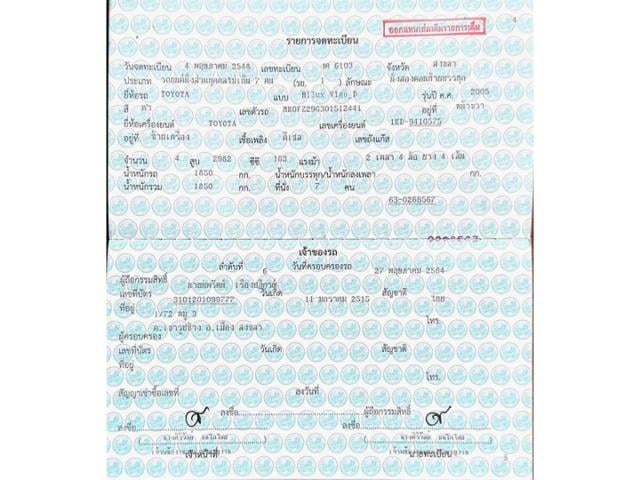 4
ออกแทนเล่มเดิมรายการเต็ม
รายการจดทะเบียน
วันจดทะเบียน 4 พฤษภาคม 2548 เลขทะเบียน 6103 จังหวัด สงขลา
ประเภท รถยนต์นั่งส่วนบุคคลไม่เกิน 7 คน (รย. 1 ) ลักษณะ นั่งสองตอนท้ายบรรทุก
ยี่ห้อรถ TOYOTA แบบ Hilux Vigo_D รุ่นปี ค.ศ. 2005
สี ดำ เลขตัวรถ MR0FZ29G301512441 อยู่ที่ หน้าขวา
ยี่ห้อเครื่องยนต์ TOYOTA เลขเครื่องยนต์ 1KD-9410575
อยู่ที่ ซ้ายเครื่อง เชื้อเพลิง ดีเซล เลขถังแก๊ส
จำนวน 4 สูบ 2982 ซีซี 163 แรงม้า 2 เพลา 4 ล้อ ยาง 4 เส้น
น้ำหนักรถ 1850 กก. น้ำหนักบรรทุก/น้ำหนักลงเพลา กก.
น้ำหนักรวม 1850 กก. ที่นั่ง 7 คน
63-0266567
เจ้าของรถ
ลำดับที่ 6 วันที่ครอบครองรถ 27 พฤษภาคม 2564
ผู้ถือกรรมสิทธิ์
เลขที่บัตร 3101201099777 วันเกิด 11 มกราคม 2515 สัญชาติ ไทย
ที่อยู่ 1/72 หมู่ 3 โทร.
ต.เขารูปช้าง อ.เมือง สงขลา
ผู้ครอบครอง
เลขที่บัตร วันเกิด สัญชาติ
ที่อยู่
โทร.
สัญญาเช่าซื้อเลขที่ ลงวันที่
ลงชื่อ ผู้ถือกรรมสิทธิ์
ลงชื่อ ลงชื่อ
เจ้าหน้าที่ นายทะเบียน
5